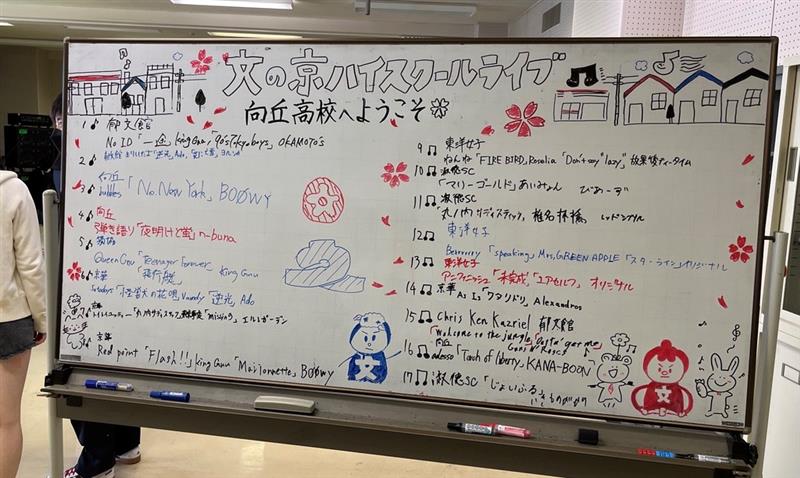 文の京ハイスクールライブ
向丘高校へようこそ
1 郁文館
No ID「一途」King Gnu「90'sTokyoboys」OKAMOTO's
2
「逆光」Ado,
3 向丘
bubbles「No. New York」BOØWY
4 向丘
弾き語り「夜明けと蛍」n-buna
5
Queen Gnu「Teenager Forever」King Gnu
6 京華
「怪獣の花唄」Vaundy「逆光」Ado
7 京華
エルレガーデン
8 京華
Red point「Flash!!!」King Gnu「Marionnette」BOØWY
9 東洋女子
ねんね「FIRE BIRD」Roselia「Don't say "lazy"」放課後ティータイム
10 淑徳SC
「マリーゴールド」あいみょん びあーず
11 淑徳SC
「丸ノ内サディスティック」椎名林檎
12 東洋女子
「speaking」Mrs. GREEN APPLE「スターライン」オリジナル
13 東洋女子
アニフィニッシュ「未完成」「ユアセルフ」オリジナル
14 京華 As Is「ワタリドリ」Alexandros
15 Chris Ken Kazriel 郁文館
「Welcome to the jungle」
Guns N' Roses
16 向丘
adesso「Torch of liberty」KANA-BOON
17 淑徳SC「じょいふる」いきものがかり
文
文